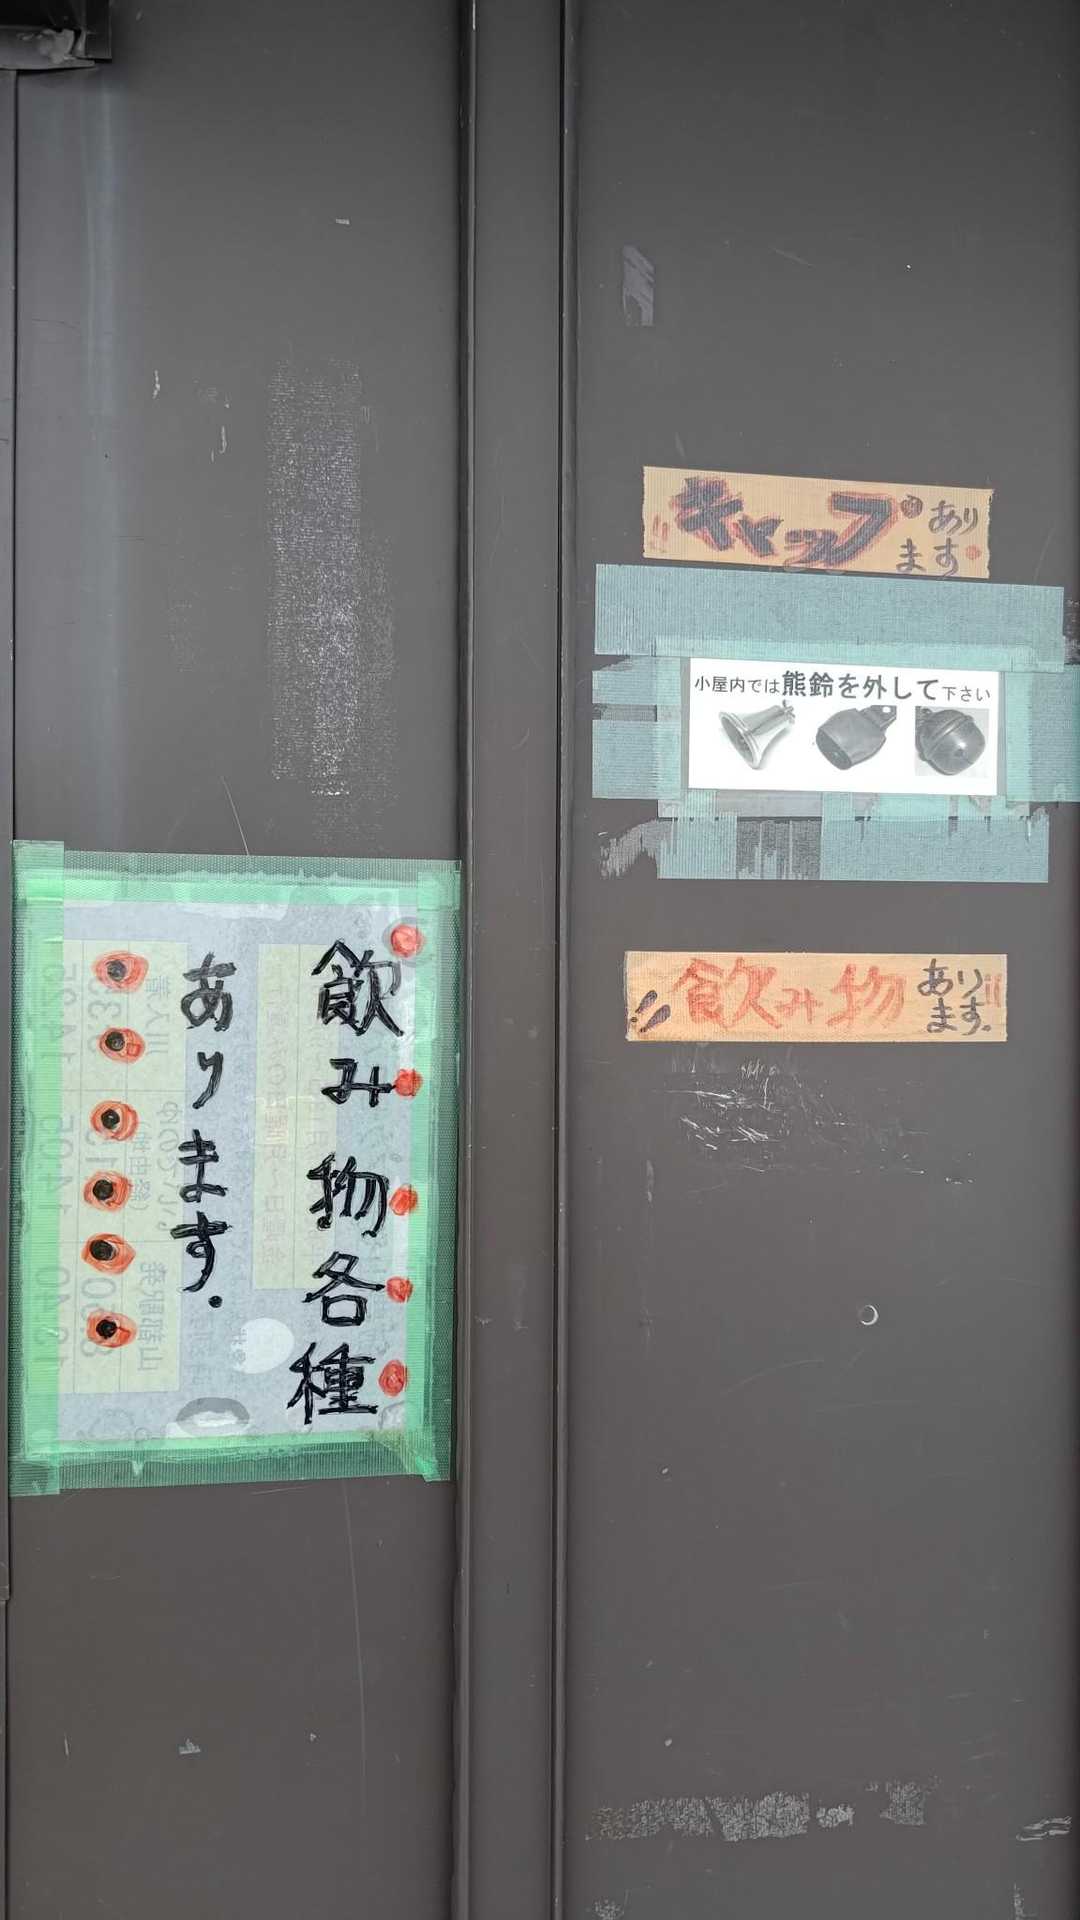 キャップあり
ます
小屋内では熊鈴を外して下さい
飲み物あり
ます.
!!
飲み物各種
あります.